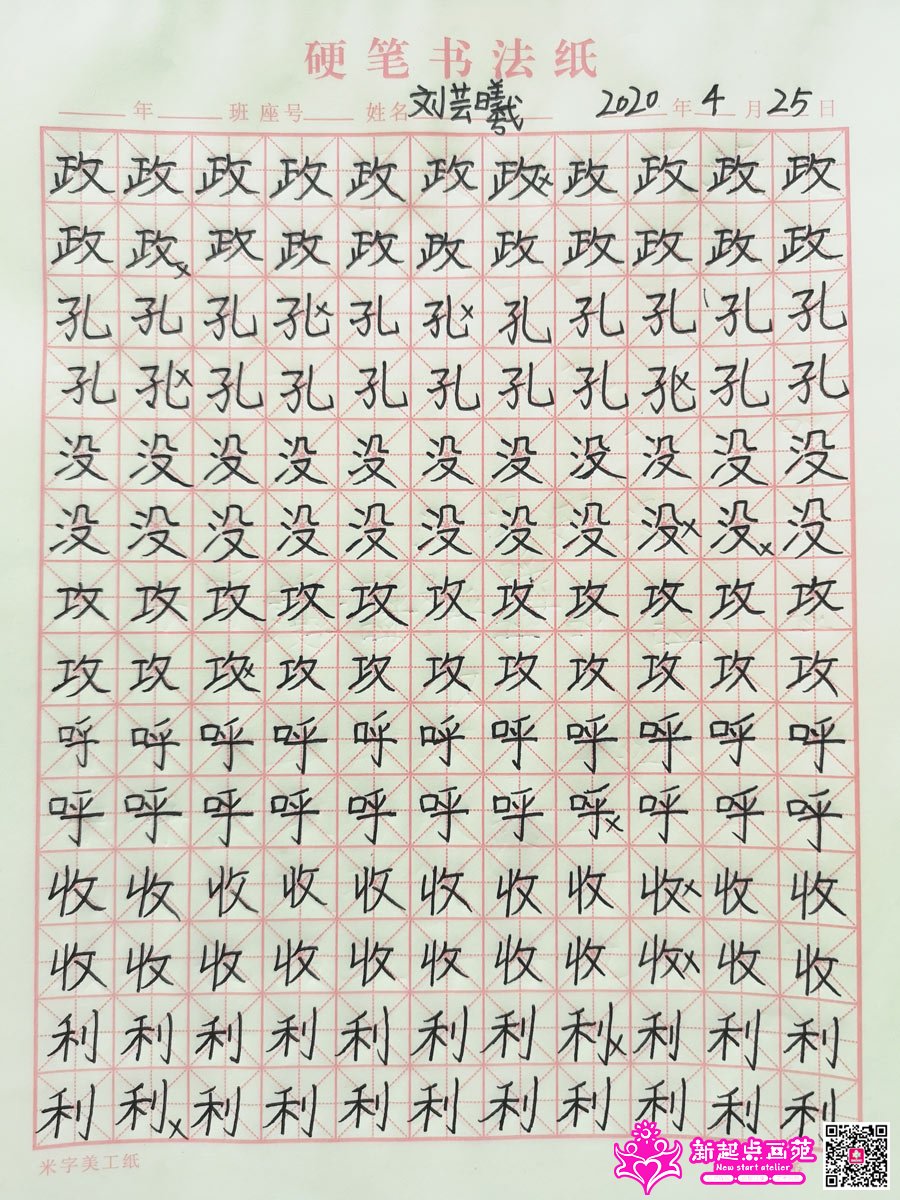 硬笔书法纸
年 班 座号 姓名 刘芸曦 2020 年 4 月 25 日
政政政政政政政×政政政政
政政×政政政政政政政政政
孔孔孔孔×孔孔×孔孔孔孔孔
孔孔×孔孔孔孔孔孔孔×孔孔
没没没没没没没没没没没
没没没没没没没没没×没×没
攻攻攻攻攻攻攻攻攻攻攻
攻攻攻×攻攻攻攻攻攻攻攻
呼呼呼呼呼呼呼呼呼呼呼
呼呼呼呼呼呼呼呼×呼呼呼
收收收收收收收收收×收收
收收收收收收收收收×收收
利利利利利利利利×利利利
利利×利利利利利利利利利
米字美工纸
新起点画苑
New start atelier